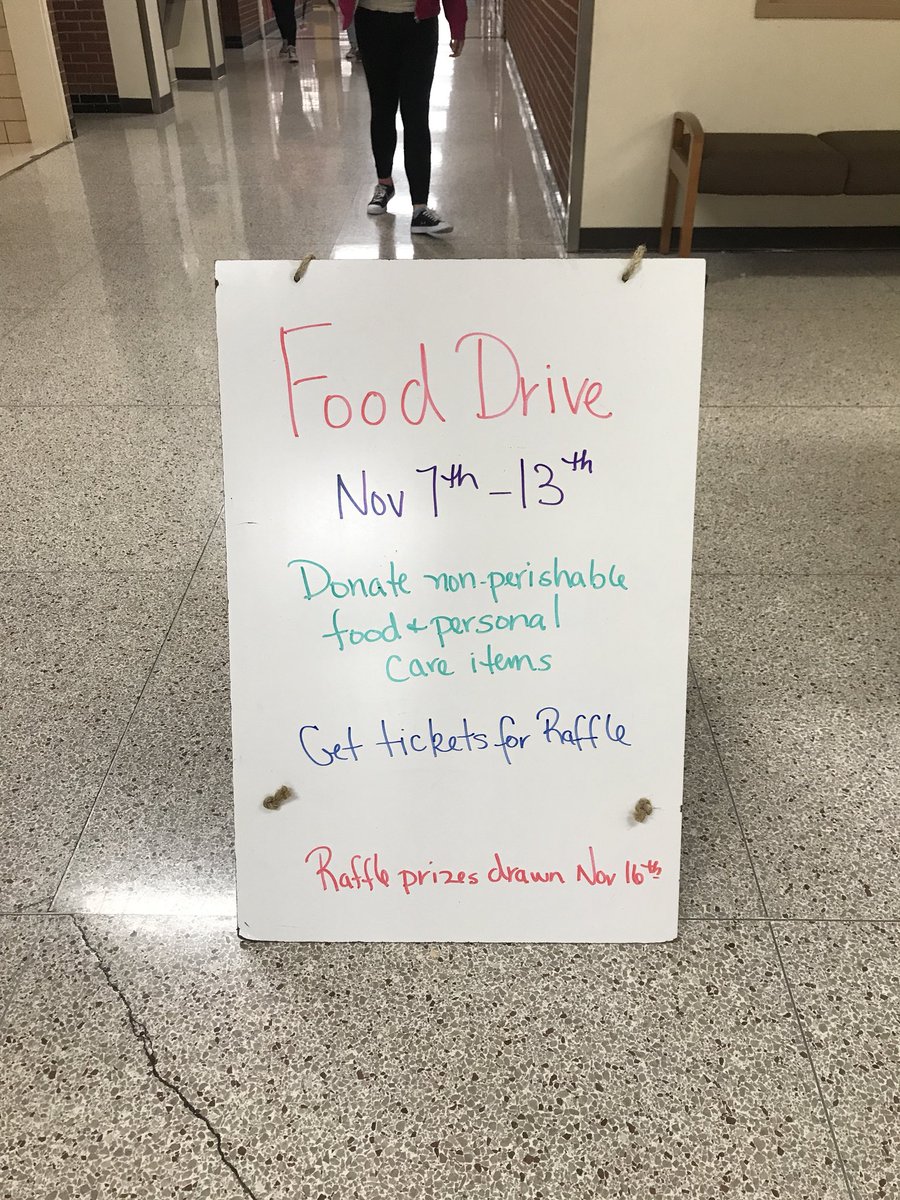 Food Drive
Nov 7th - 13th
Donate non-perishable
food + personal
care items
Get tickets for Raffle
Raffle prizes drawn Nov 16th